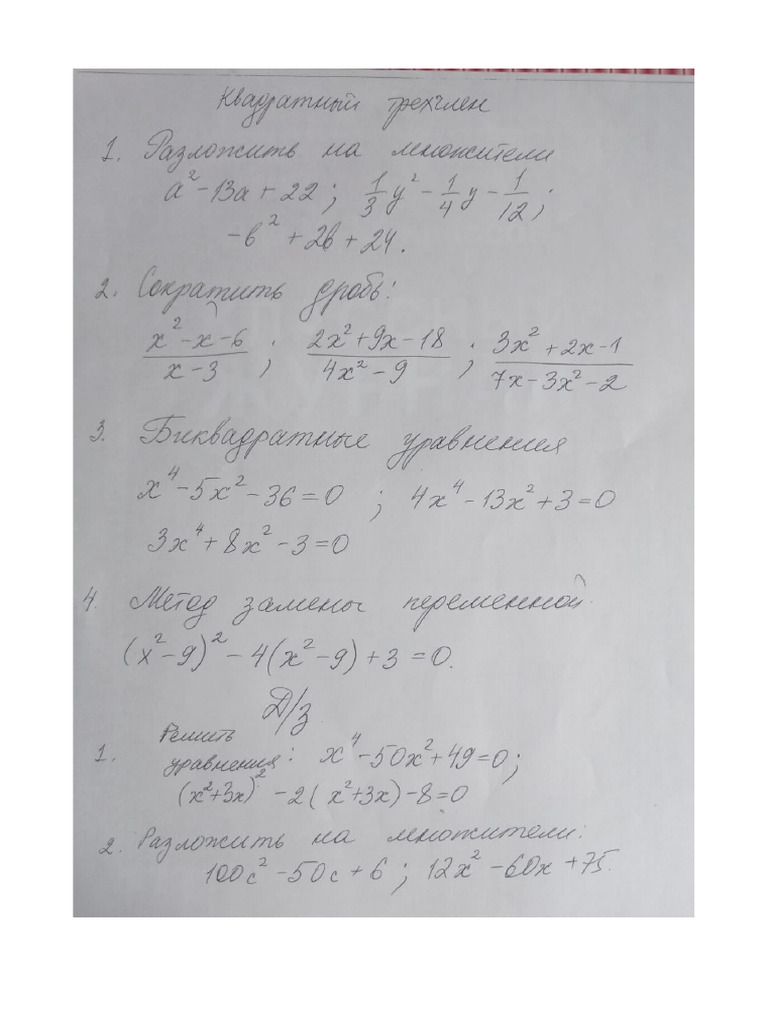 Квадратный трехчлен
1. Разложить на множители
a² - 13a + 22 ; 1/3 y² - 1/4 y - 1/12 ;
-b² + 2b + 24.
2. Сократить дробь:
(x² - x - 6)/(x - 3) ; (2x² + 9x - 18)/(4x² - 9) ; (3x² + 2x - 1)/(7x - 3x² - 2)
3. Биквадратные уравнения
x⁴ - 5x² - 36 = 0 ; 4x⁴ - 13x² + 3 = 0
3x⁴ + 8x² - 3 = 0
4. Метод замены переменной.
(x² - 9)² - 4(x² - 9) + 3 = 0.
Д/з
1. Решить
уравнения: x⁴ - 50x² + 49 = 0 ;
(x² + 3x)² - 2(x² + 3x) - 8 = 0
2. Разложить на множители:
100c² - 50c + 6 ; 12x² - 60x + 75.